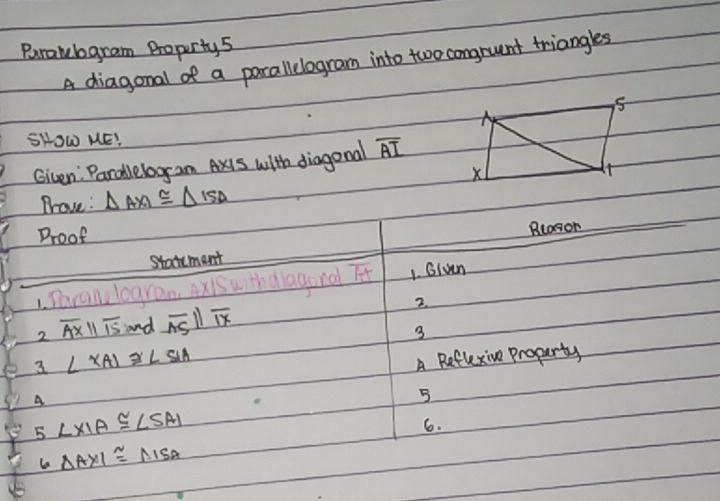 Parallelogram Property 5
A diagonal of a parallelogram into two congruent triangles
SHOW ME!
Given: Parallelogram AXIS with diagonal AI
Prove: Δ AXI ≅ Δ ISA
Proof
A S
X I
Statement Reason
1. Parallelogram AXIS with diagonal AI 1. Given
2 AX || IS and AS || IX 2.
3 ∠ XAI ≅ ∠ SIA 3
4 4 Reflexive Property
5 ∠XIA ≅ ∠SAI 5
6 ΔAXI ≅ ΔISA 6.